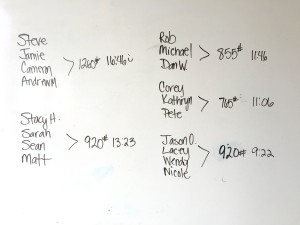 Steve
Jamie
Cameron > 1260# 16:46
Andrew M
Stacy H.
Sarah
Sean > 920# 13:23
Matt
Rob
Michael > 855# 11:46
Dan W.
Corey
Kathryn > 765# 11:06
Pete
Jason O.
Lacey > 920# 9:22
Wendy
Nicole